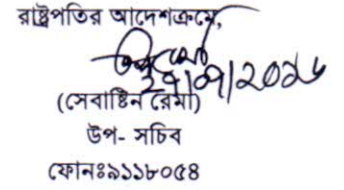 রাষ্ট্রপতির আদেশক্রমে,
(সেবাষ্টিন রেমা)
উপ- সচিব
ফোনঃ৯১১৮০৫৪